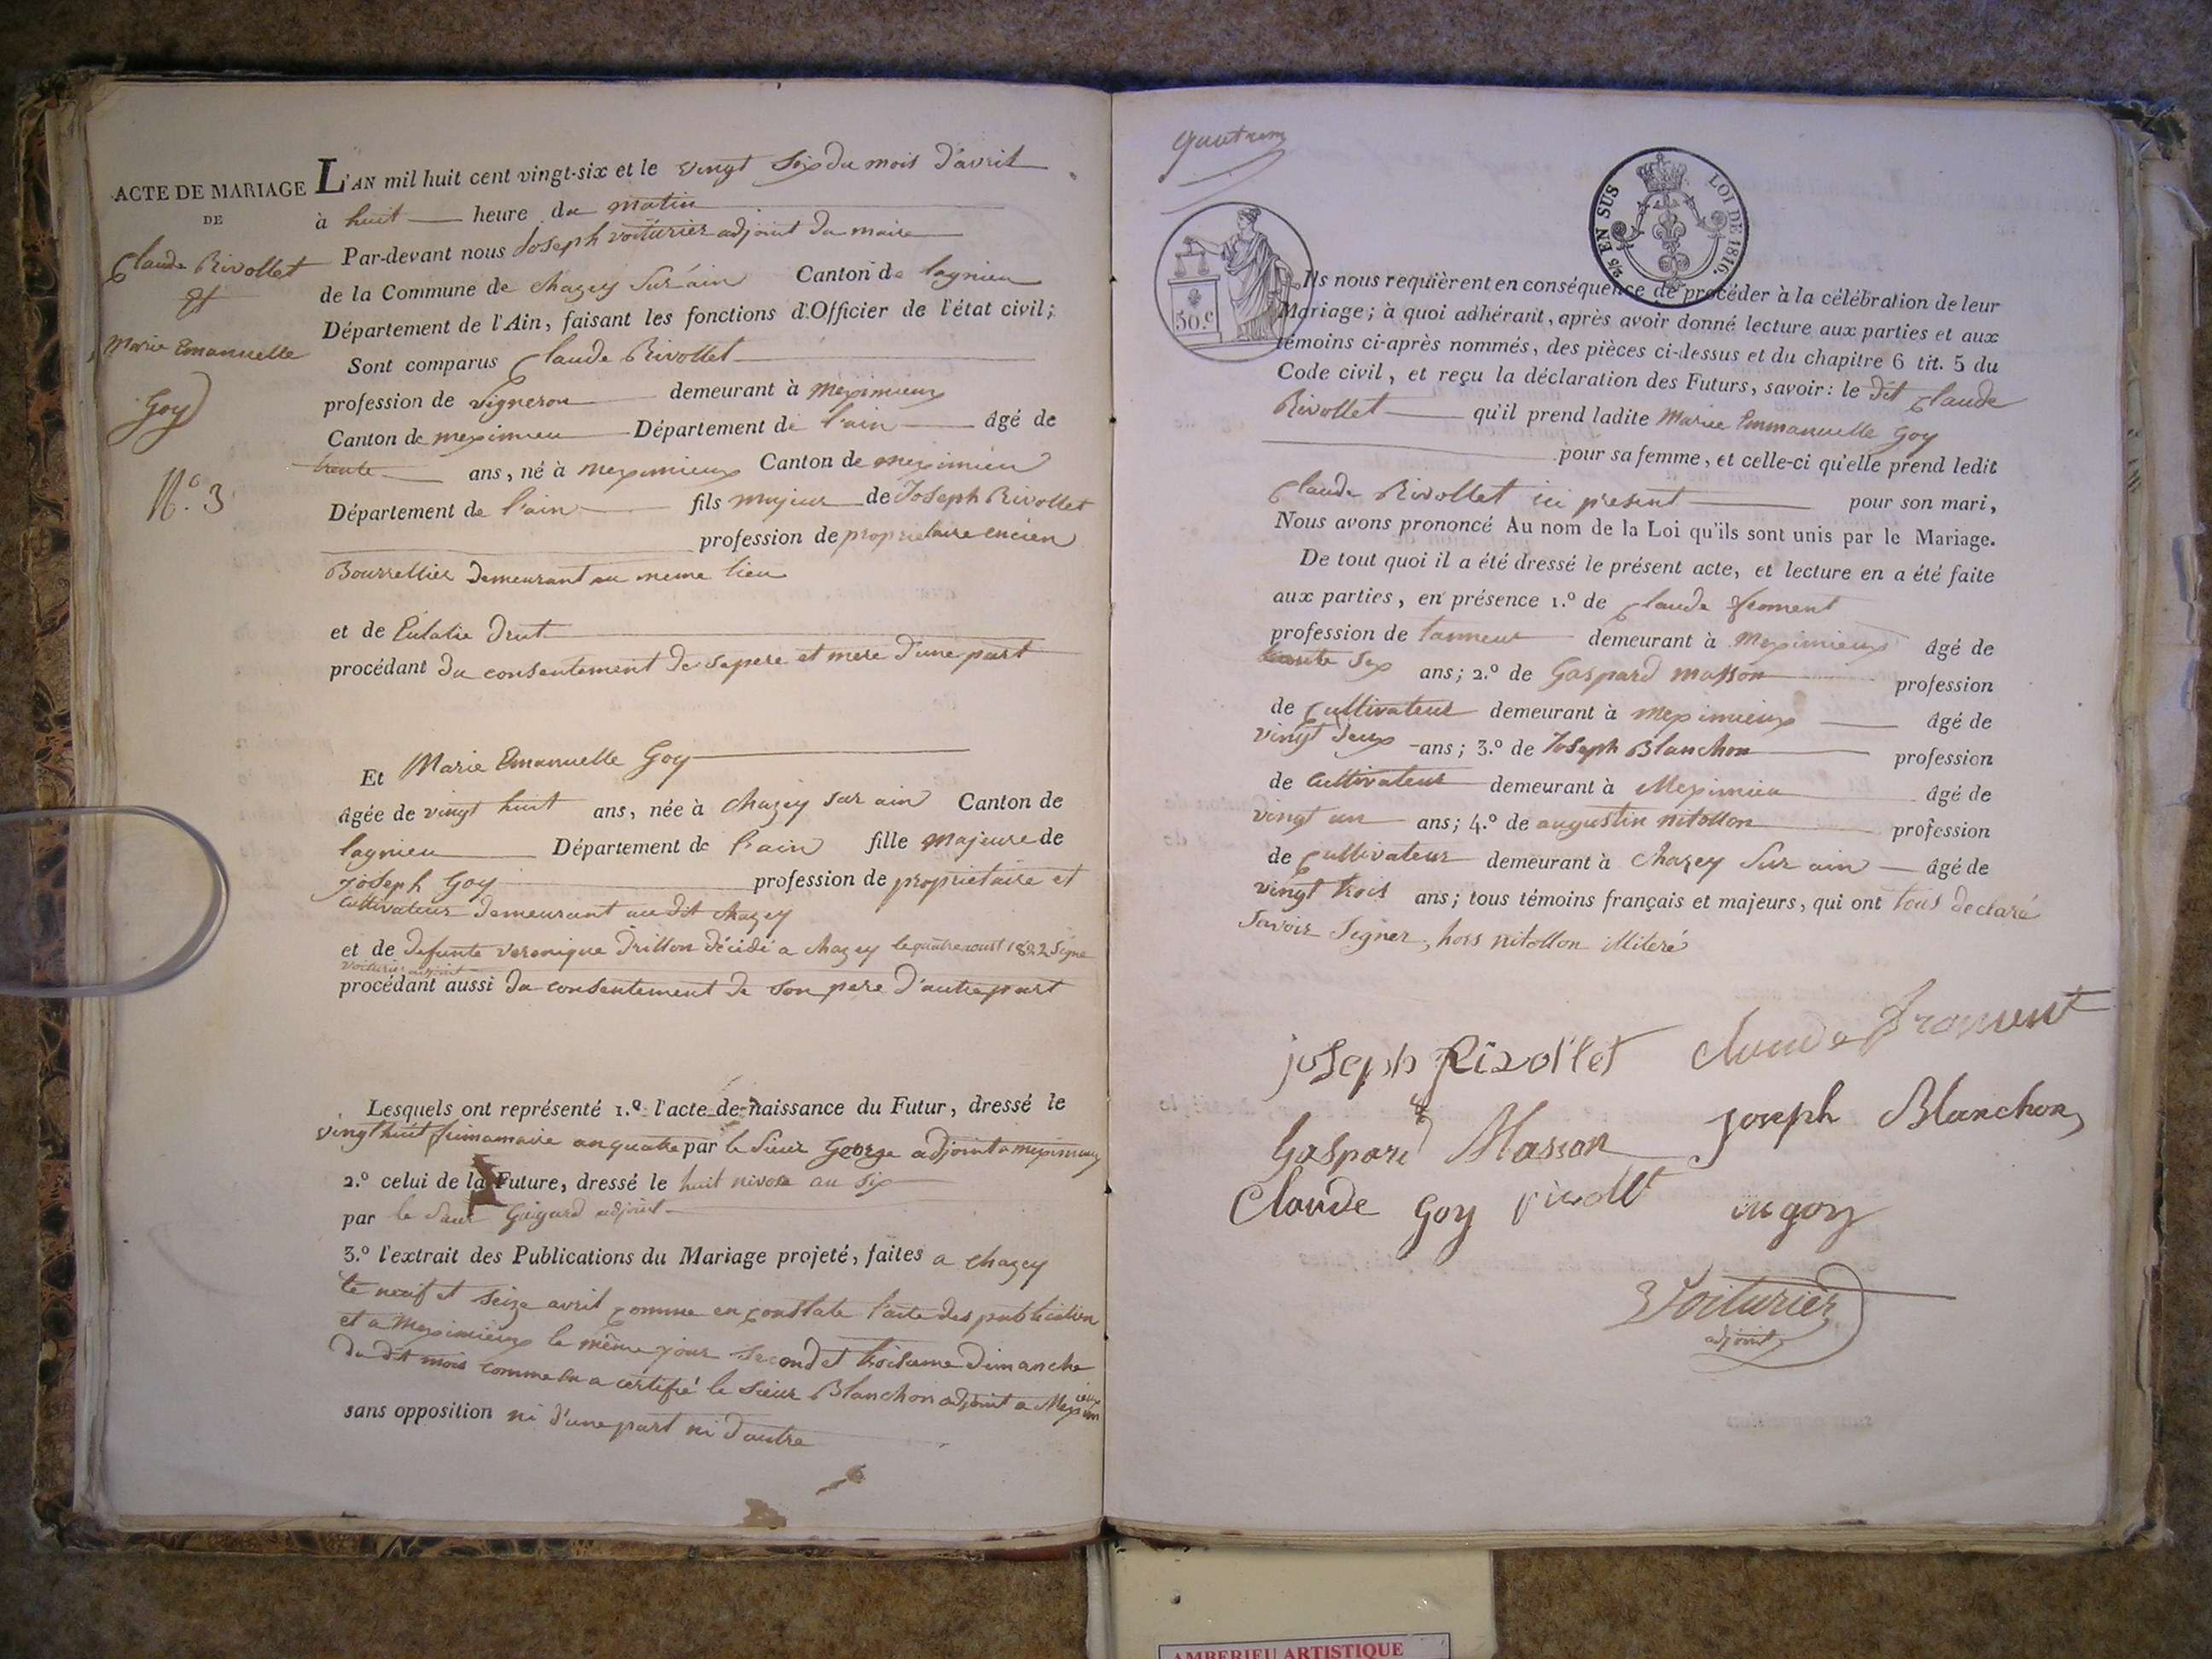 ACTE DE MARIAGE
DE
Claude Rivollet
Et
Marie Emanuelle
Goy
N.º 3
L'AN mil huit cent vingt-six et le vingt six du mois d'avril
à huit heure du matin
Par-devant nous Joseph voiturier adjoint du maire
de la Commune de chazey sur ain Canton de lagnieu
Département de l'Ain, faisant les fonctions d'Officier de l'état civil;
Sont comparus Claude Rivollet
profession de vigneron demeurant à meximieux
Canton de meximieu Département de l'ain âgé de
trente ans, né à meximieux Canton de meximieu
Département de l'ain fils majeur de Joseph Rivollet
profession de proprietaire encien
Bourrellier demeurant au meme lieu
et de Eulalie Drut
procédant du consentement de sapere et mere d'une part
Et Marie Emanuelle Goy
âgée de vingt huit ans, née à chazey sur ain Canton de
lagnieu Département de l'ain fille majeure de
Joseph Goy profession de proprietaire et
cultivateur demeurant au dit chazey
et de defunte veronique Drillon décidé a chazey le quatre aoust 1822 Signé
voiturier adjoint
procédant aussi du consentement de son pere d'autre part
Lesquels ont représenté 1.º l'acte de naissance du Futur, dressé le
vingt huit frimamaire an quatre par le Sieur George adjoint a meximieux
2.º celui de la Future, dressé le huit nivose an six
par le Sieur Guigard adjoint
3.º l'extrait des Publications du Mariage projeté, faites a chazey
le neuf et seize avril comme en constate l'acte des publication
et a Meximieux le même jour second et troisieme Dimanche
du dit mois comme la certifié le sieur Blanchon adjoint a Meximieux
sans opposition ni d'une part ni d'autre
50.c
EN SUS
LOI DE 1816.
Ils nous requièrent en conséquence de procéder à la célébration de leur
Mariage; à quoi adhérant, après avoir donné lecture aux parties et aux
témoins ci-après nommés, des pièces ci-dessus et du chapitre 6 tit. 5 du
Code civil, et reçu la déclaration des Futurs, savoir: le dit Claude
Rivollet qu'il prend ladite Marie Emmanuelle Goy
pour sa femme, et celle-ci qu'elle prend ledit
Claude Rivollet ici present pour son mari,
Nous avons prononcé Au nom de la Loi qu'ils sont unis par le Mariage.
De tout quoi il a été dressé le présent acte, et lecture en a été faite
aux parties, en présence 1.º de Claude froment
profession de tanneur demeurant à Meximieux âgé de
trente six ans; 2.º de Gaspard masson profession
de cultivateur demeurant à meximieux âgé de
vingt deux ans; 3.º de Joseph Blanchon profession
de cultivateur demeurant à Meximieu âgé de
vingt un ans; 4.º de augustin nitollon profession
de cultivateur demeurant à chazey sur ain âgé de
vingt trois ans; tous témoins français et majeurs, qui ont tous declaré
savoir signer, hors nitollon illiteré
joseph Rivollet Claude froment
Gaspard Masson joseph Blanchon
Claude Goy rivollt goy
Voiturier
adjoint
AMBERIEU ARTISTIQUE